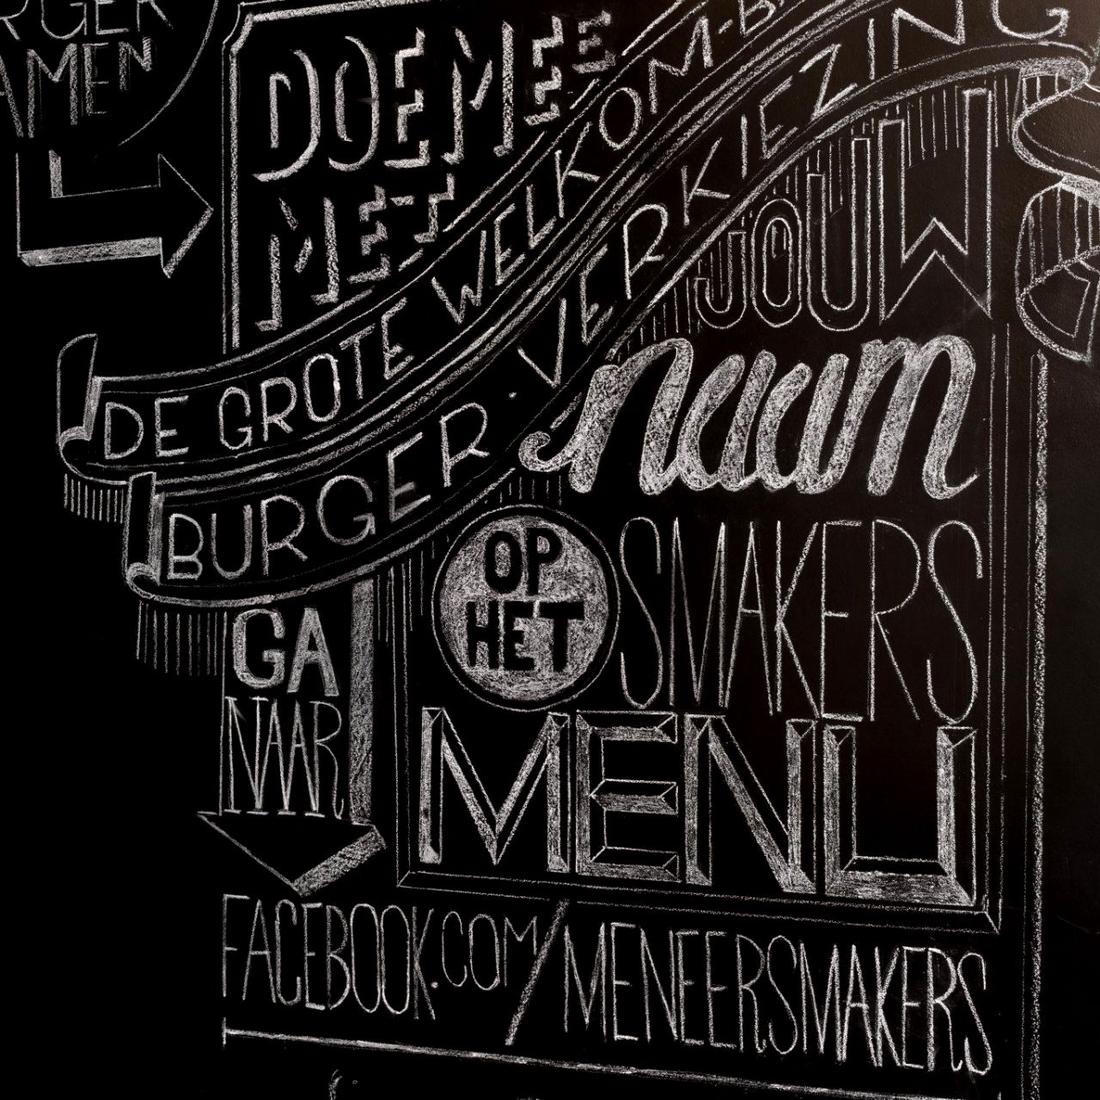 AMEN
DOE MEE
MET
DE GROTE WELKOM-
BURGER · VERKIEZING
JOUW
naam
OP
HET
SMAKERS
MENU
GA
NAAR
FACEBOOK.COM/MENEERSMAKERS